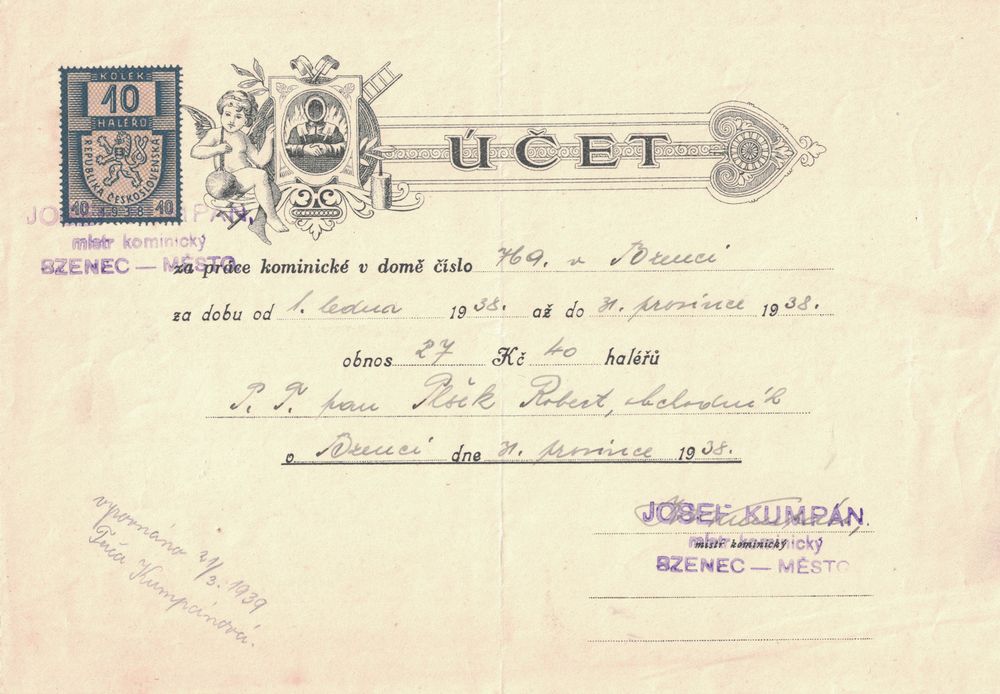 KOLEK
10
HALÉŘŮ
REPUBLIKA ČESKOSLOVENSKÁ
40 1938 40
ÚČET
JOSEF KUMPÁN,
mistr kominický
BZENEC — MĚSTO
za práce kominické v domě číslo 769. v Bzenci
za dobu od 1. ledna 1938. až do 31. prosince 1938.
obnos 27 Kč 40 haléřů
P. T. pan Plšík Robert, obchodník
v Bzenci dne 31. prosince 1938.
JOSEF KUMPÁN,
mistr kominický
mistr kominický
BZENEC — MĚSTO
vyrovnáno 21/3. 1939
Kumpánová.